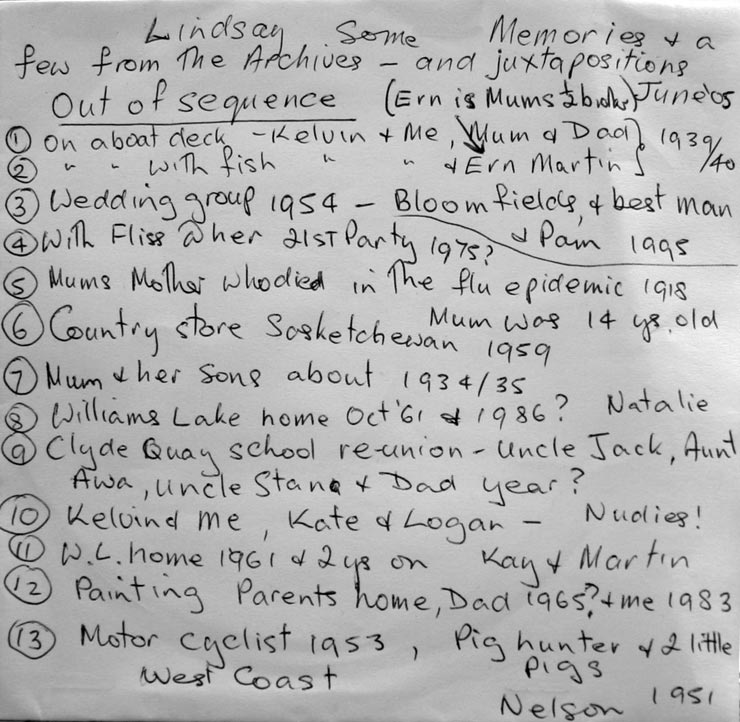 Lindsay Some Memories & a
few from The Archives - and juxtapositions
Out of sequence (Ern is Mums ½ brother) June '05
① On aboat deck - Kelvin + Me, Mum & Dad } 1939/40
② " " with fish " " & Ern Martin
③ Wedding group 1954 - Bloomfields, & best man
④ With Fliss @ her 21ST Party 1975? & Pam 1995
⑤ Mums Mother who died in The flu epidemic 1918
Mum was 14 ys. old
⑥ Country store Sasketchewan 1959
⑦ Mum & her sons about 1934/35
⑧ Williams Lake home Oct '61 & 1986? Natalie
⑨ Clyde Quay school re-union - Uncle Jack, Aunt
Awa, Uncle Stan & Dad year?
⑩ Kelvin & me, Kate & Logan - Nudies!
⑪ W.L. home 1961 & 2 ys on Kay & Martin
⑫ Painting Parents home, Dad 1965? + me 1983
⑬ Motor cyclist 1953, Pig hunter & 2 little
West Coast pigs
Nelson 1951